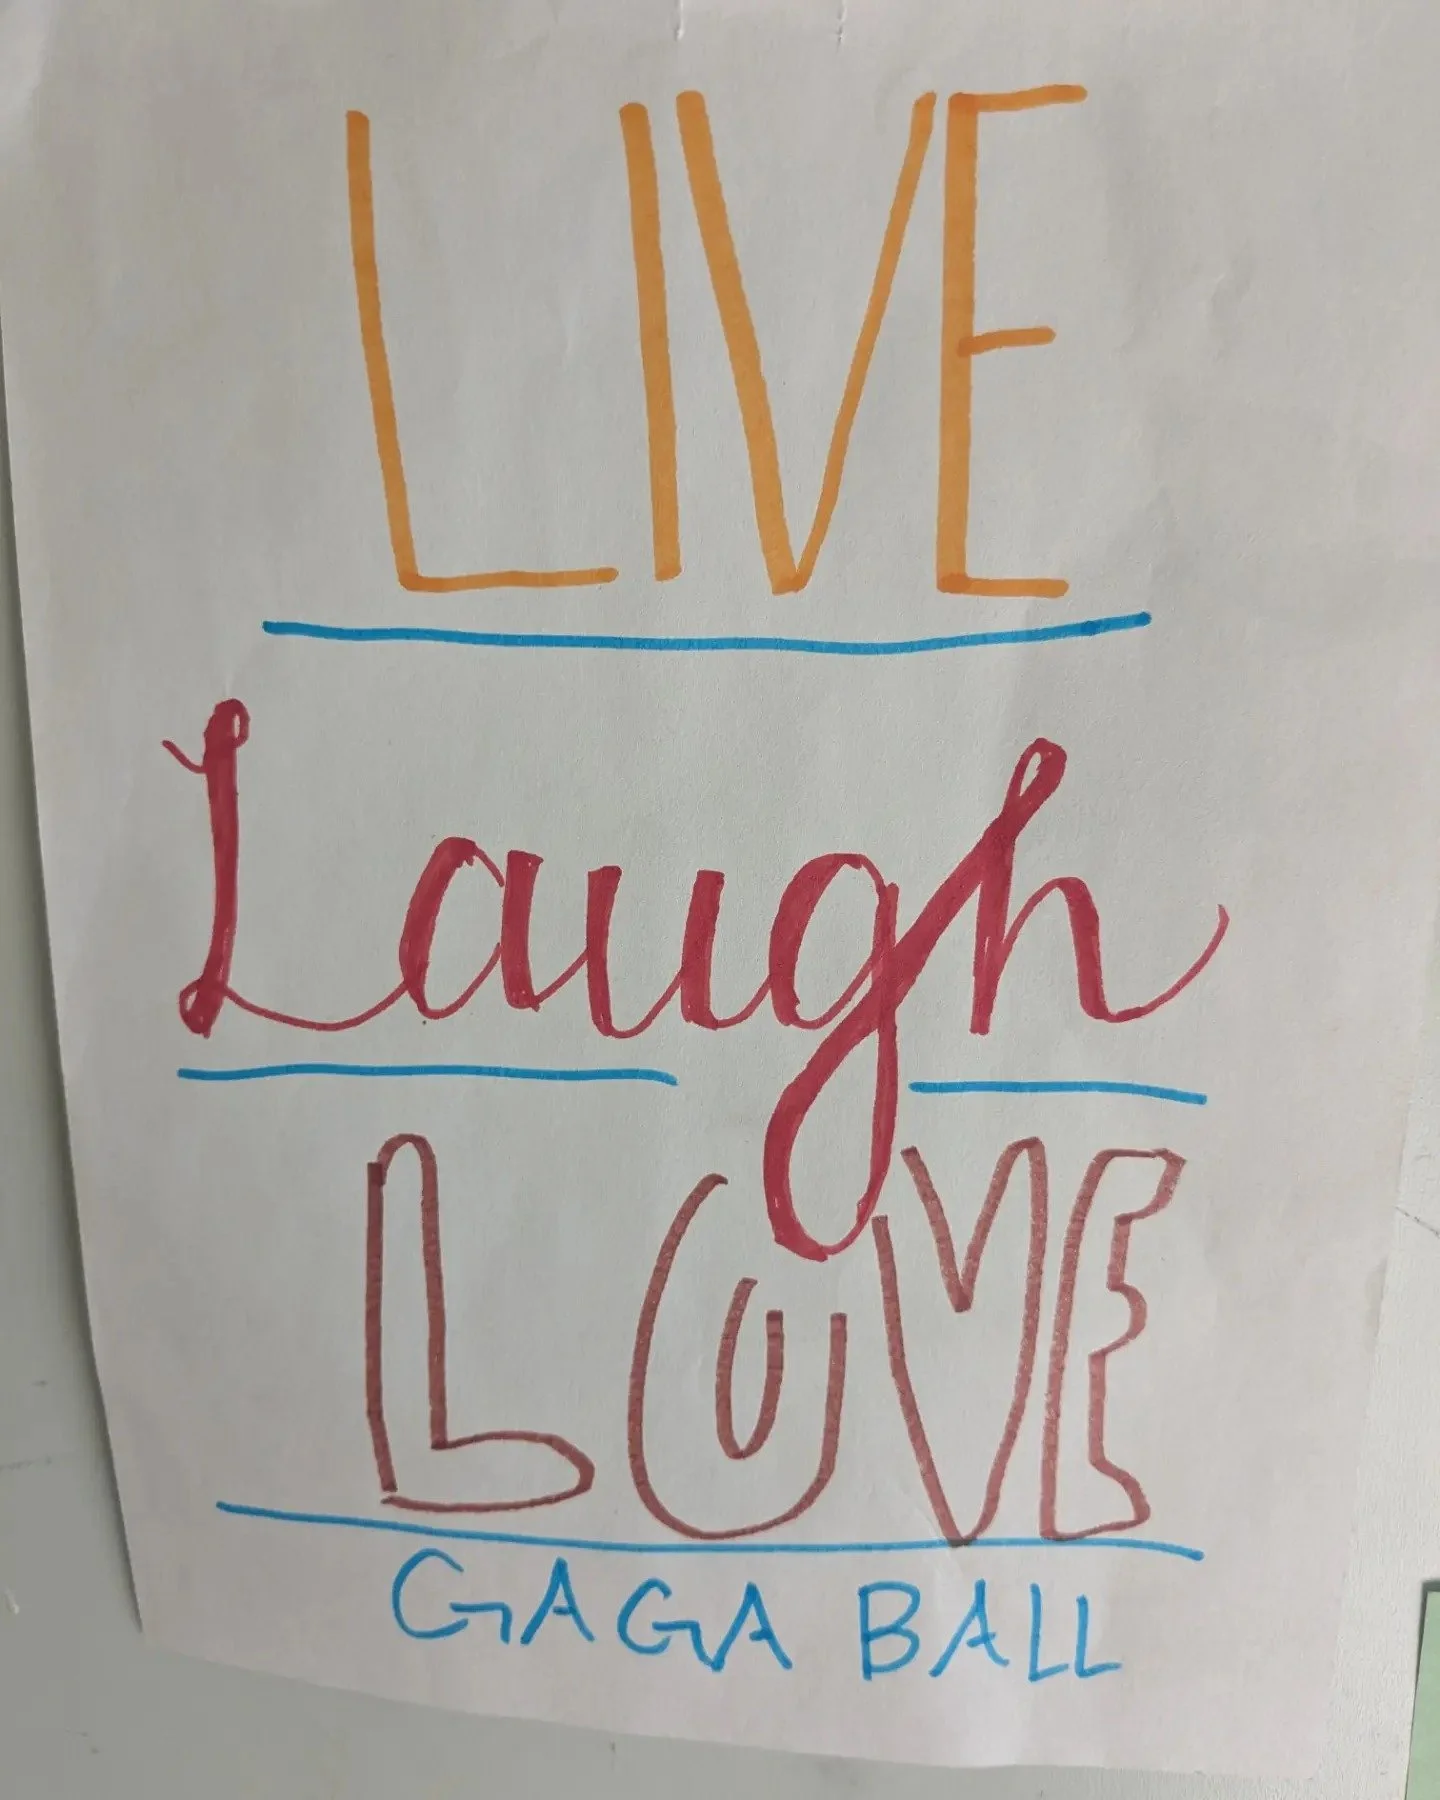 LIVE
Laugh
LOVE
GAGA BALL